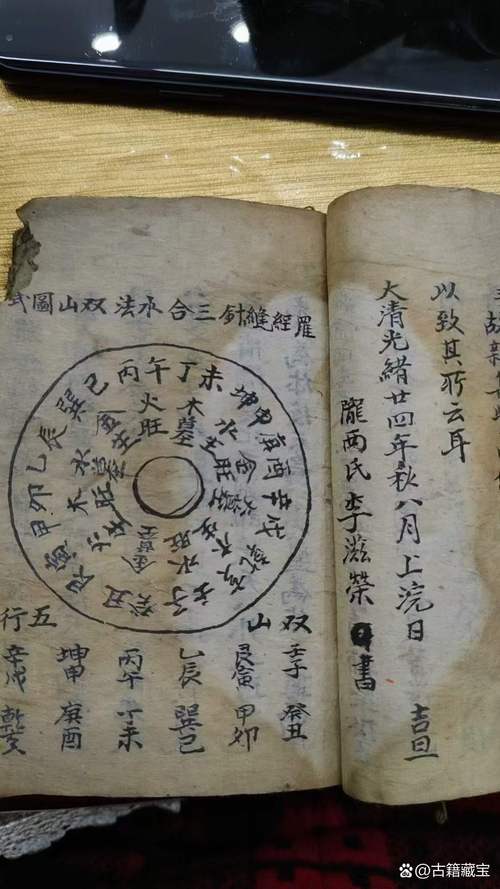 以致其所云耳
吉旦
大清光緒廿四年秋八月上浣日
隴西氏李滋榮書
羅經縫針三合水法双山圖式
丙午丁未坤申庚酉辛戌乾亥壬子癸丑艮寅甲卯乙辰巽巳
火旺
木墓
水生
金旺
火墓
木生
水旺
金墓
火生
木旺
水墓
金生
双山五行
壬子癸丑
艮寅甲卯
乙辰巽巳
丙午丁未
坤申庚酉
辛戌乾亥
@古籍藏宝